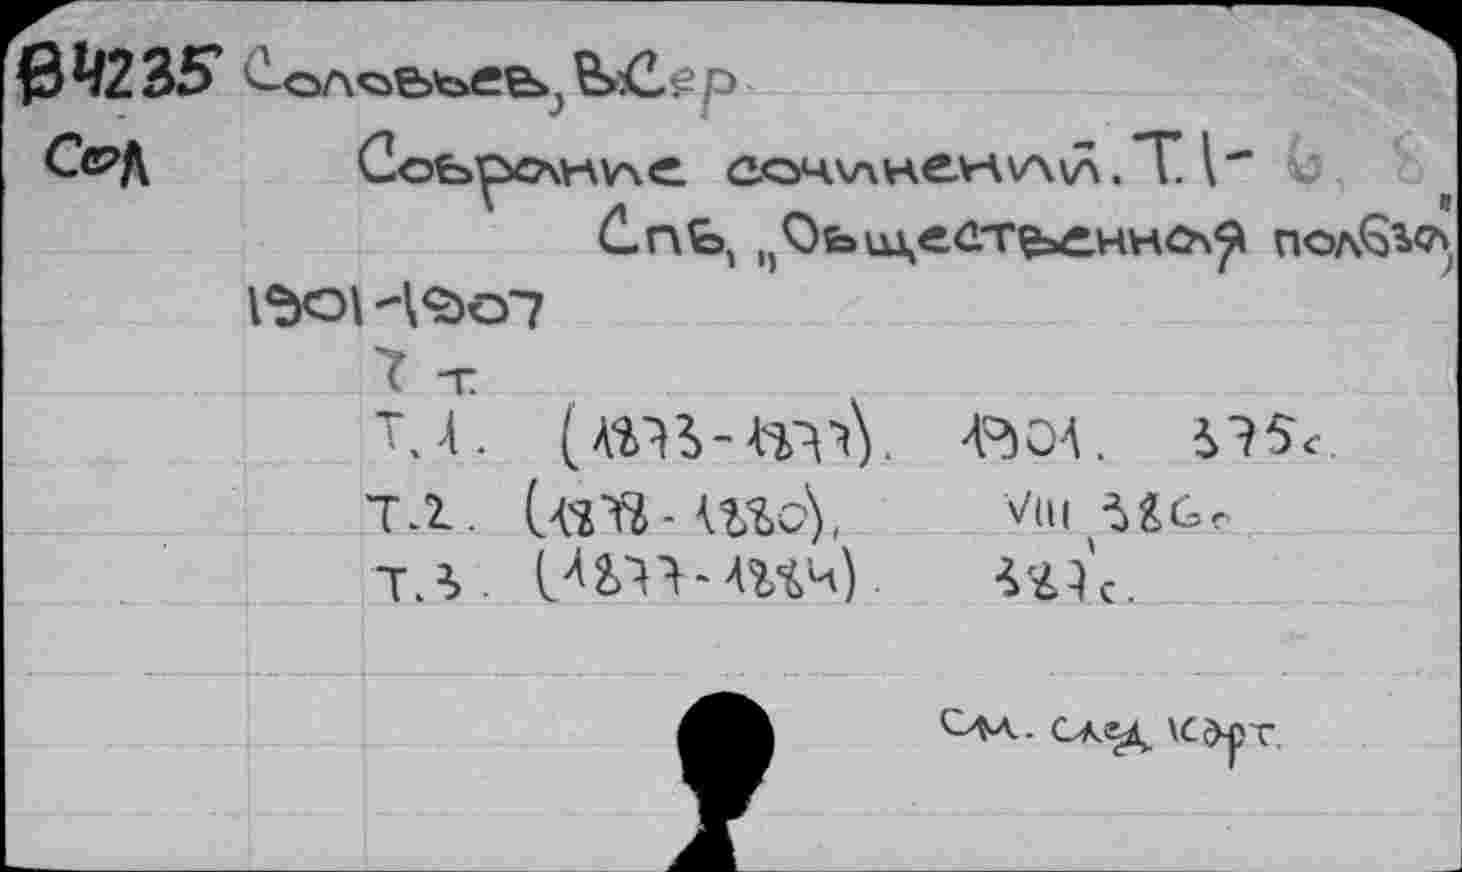 В4235 Соловьевъ, В.Сер
Сод Собрание сочинений. Т. 1-
Спб, „Общественная польза",
1901-1907
7 т.
Т.1. (1873-1877). 1901. 375с.
Т.2. (1878-1880), VIII, 386с
Т.3. (1877-1884). 387с.
См. след. карт.